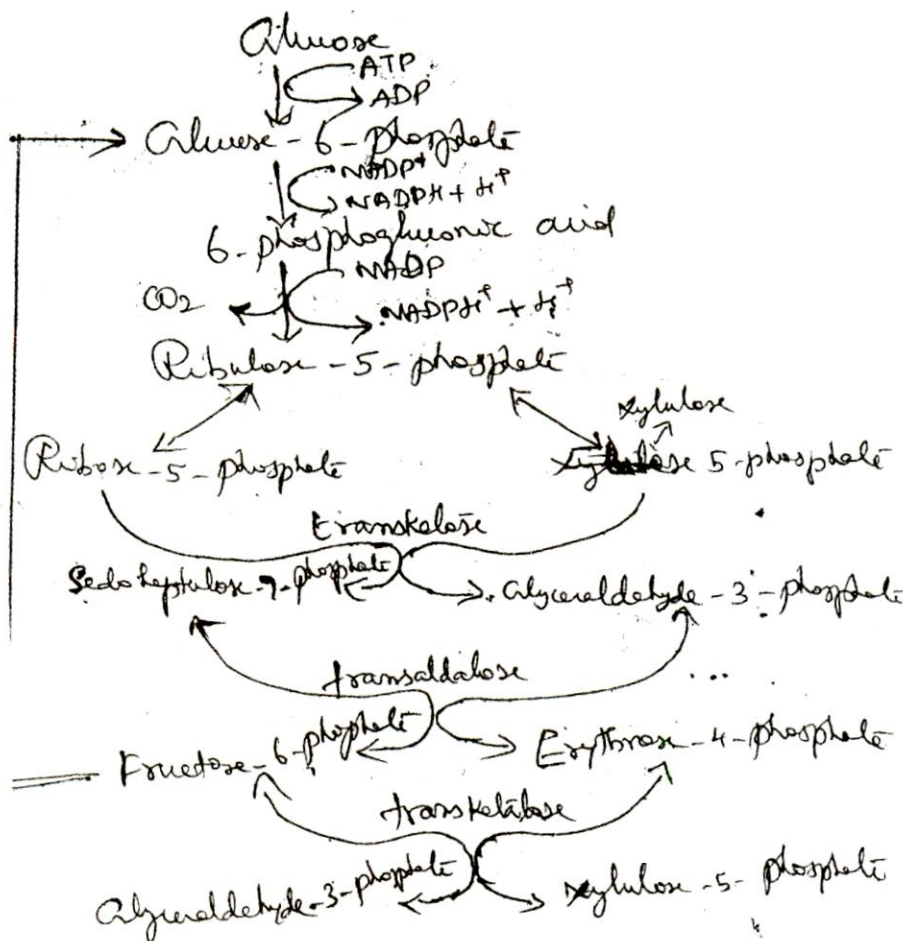 Glucose
ATP
ADP
Glucose - 6 - phosphate
NADP+
NADPH + H+
6 - phosphogluconic acid
NADP
CO2
NADPH+ + H+
Ribulose - 5 - phosphate
xylulose
Ribose - 5 - phosphate
5 - phosphate
transkelose
Sedoheptulose - 7 - phosphate
Glyceraldehyde - 3 - phosphate
transaldalose
...
Fructose - 6 - phosphate
Erythrose - 4 - phosphate
transketalose
Glyceraldehyde - 3 - phosphate
xylulose - 5 - phosphate